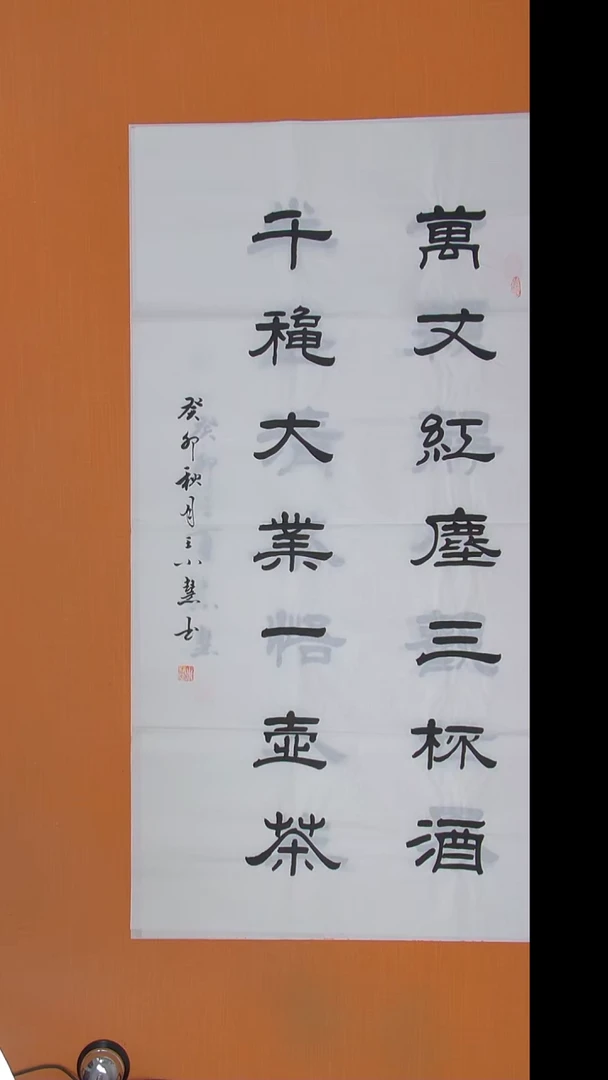 萬丈紅塵三杯酒
千穐大業一壺茶
癸卯秋月王小慧书